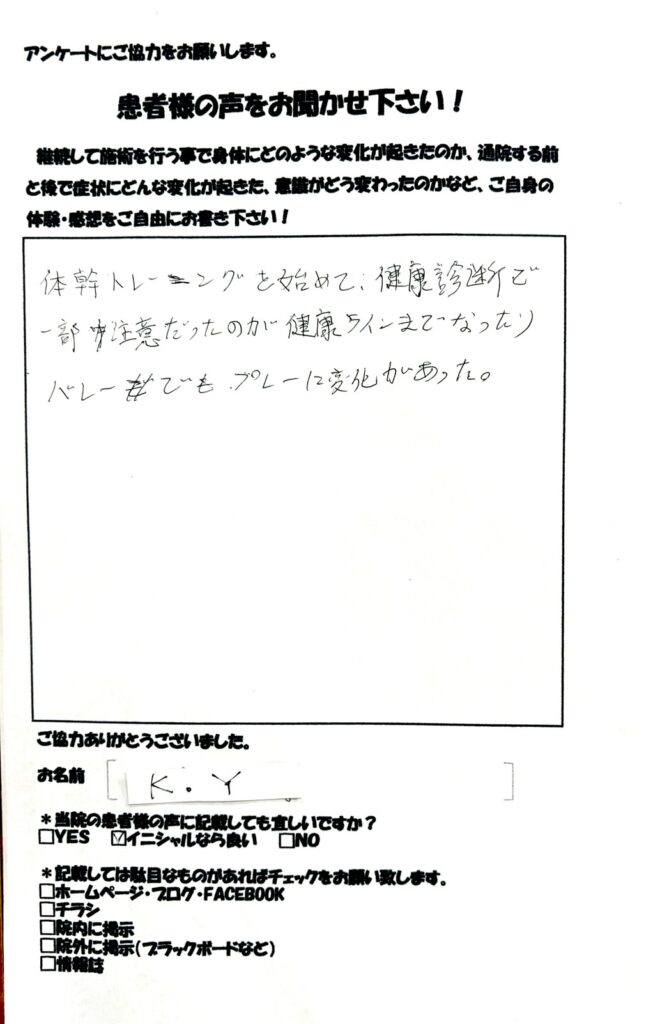 アンケートにご協力をお願いします。
患者様の声をお聞かせ下さい！
継続して施術を行う事で身体にどのような変化が起きたのか、通院する前
と後で症状にどんな変化が起きた、意識がどう変わったのかなど、ご自身の
体験・感想をご自由にお書き下さい！
体幹トレーニングを始めて、健康診断で
一部要注意だったのが健康ラインまでなったり
バレーでも プレーに変化があった。
ご協力ありがとうございました。
お名前 K.Y
＊当院の患者様の声に記載しても宜しいですか？
□YES ☑イニシャルなら良い □NO
＊記載しては駄目なものがあればチェックをお願い致します。
□ホームページ・ブログ・FACEBOOK
□チラシ
□院内に掲示
□院外に掲示（ブラックボードなど）
□情報誌